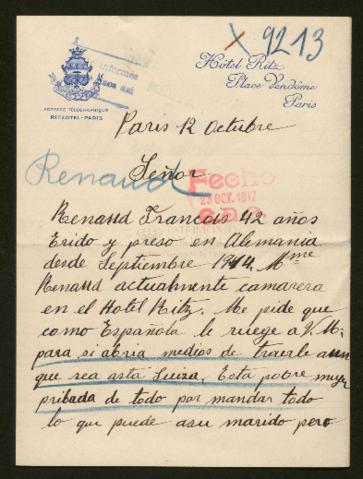 X 9213
Hôtel Ritz
Place Vendôme
Paris
ADRESSE TÉLÉGRAPHIQUE
RITZOTEL-PARIS
Paris 12 Octubre
Señor
Renaud
Fecho
23 OCT. 1917
Renaud Francois 42 años
Erido y preso en Alemania
desde Septiembre 1914. Mme
Renaud actualmente camarera
en el Hotel Ritz. Me pide que
como Española le ruege a V. M.
para si abria medios de traerle aun
que sea asta Suiza. Esta pobre muger
pribada de todo por mandar todo
lo que puede asu marido pero